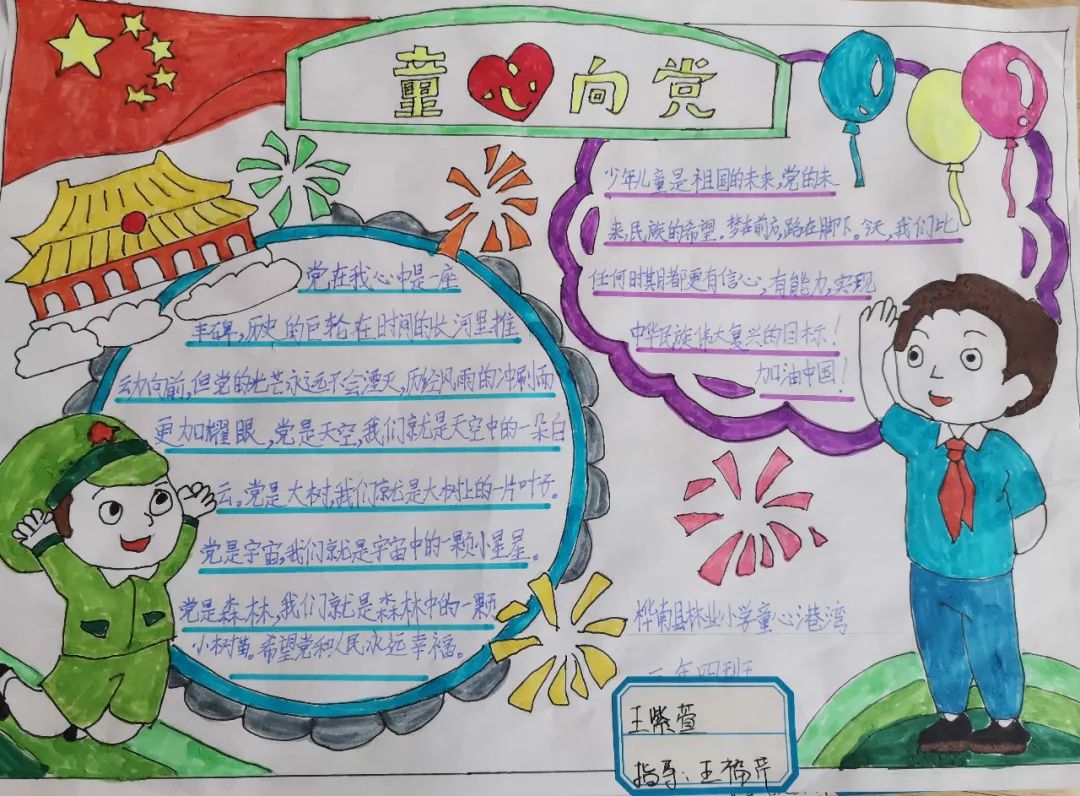 童心向党
党在我心中是一座
丰碑,历史的巨轮在时间的长河里推
动向前,但党的光芒永远不会湮灭,历经风雨的冲刷而
更加耀眼,党是天空,我们就是天空中的一朵白
云。党是大树,我们就是大树上的一片叶子。
党是宇宙,我们就是宇宙中的一颗小星星。
党是森林,我们就是森林中的一颗
小树苗。希望党和人民永远幸福。
少年儿童是祖国的未来,党的未
来,民族的希望.梦在前方,路在脚下。今天,我们比
任何时期都更有信心,有能力,实现
中华民族伟大复兴的目标!
加油中国!
桦南县林业小学童心港湾
年四班
王紫萱
指导:王